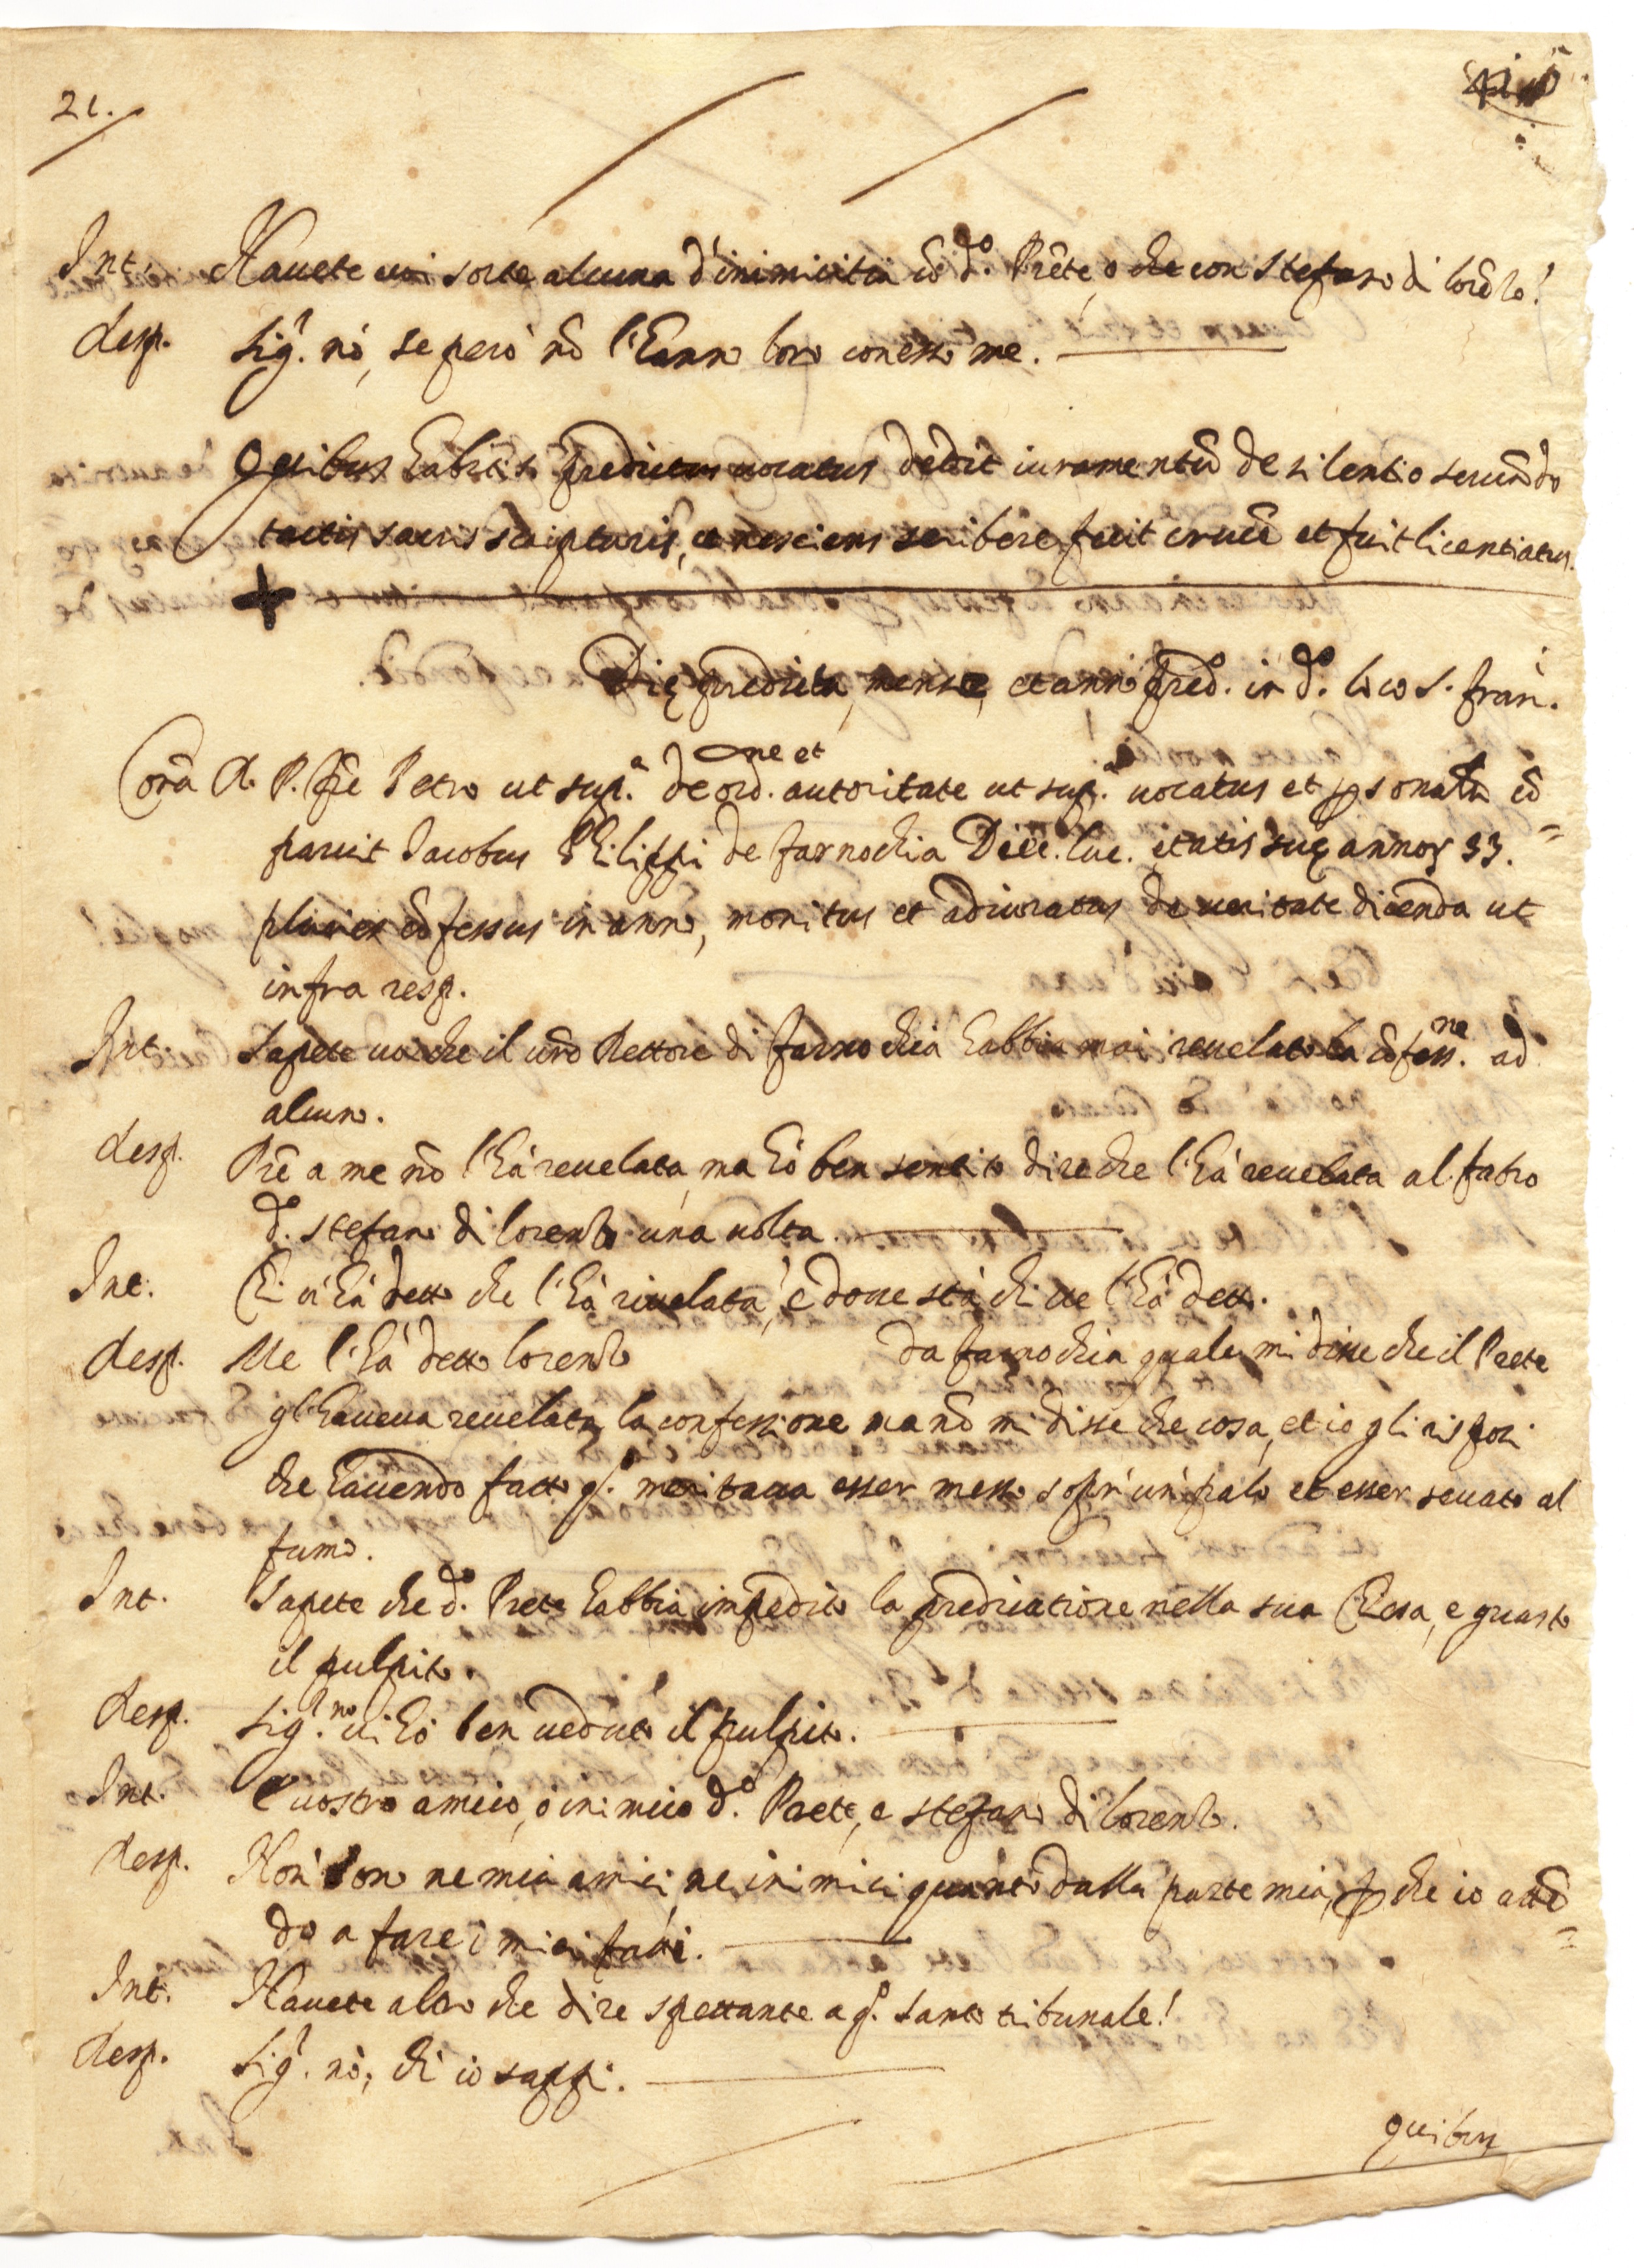 21.
Int. Havete voi sorte alcuna d'inimicitia cō d.º Prēte, o che con Stefano di Lorēzo!
Resp. Sig.r nò, se però nō l'hanno loro con esso me.
Quibus habitis predictus vocatus dedit iuramentū de silentio servādo
tactis sacris scripturis, et nesciens scribere fecit crucē et fuit licentiatus.
+
Die predicta, mense, et anno pred.º in d.º loco S. Fran.i
Corā R. P. Frē Petro ut sup.a de ord.ne et autoritate ut sup.a vocatus et personalr cō=
paruit Jacobus Philippi de farnochia Dièc. Luc. etatis suę annor 33.
pluries cōfessus in anno, monitus et adiuratus de veritate dicenda ut
infra resp.
Int. Sapete voi che il vrō Rettore di farnochia habbia mai revelato la cōfess.ne ad
alcuno.
Resp. Prē a me nō l'hà revelata, ma hò ben sentito dire che l'hà revelata al fabro
d.º Stefano di Lorenzo una volta.
Int. Chi vi hà detto che l'hà rivelata, e dove stà chi ve l'hà detto.
Resp. Me l'hà detto Lorenzo da farnochia quale mi disse che il Prete
gl'haveva revelata la confessione ma nō mi disse che cosa, et io gli risposi
che havendo fatto q.º meritava esser messo sopr'un palo et esser sevato al
fumo.
Int. Sapete che d.º Prete habbia impedito la predicatione nella sua Chiesa, e guasto
il pulpito.
Resp. Sig.r no vi hò ben veduto il pulpito.
Int. E vostro amico, ò inimico d.º Prete, e Stefano di Lorenzo.
Resp. Non sono ne miei amici, ne inimici quanto dalla parte mia, p che io attē=
do a fare i miei fatti.
Int. Havete altro che dire spettante a q.º Santo tribunale!
Resp. Sig.r nò, ch' io sappi.
quibus